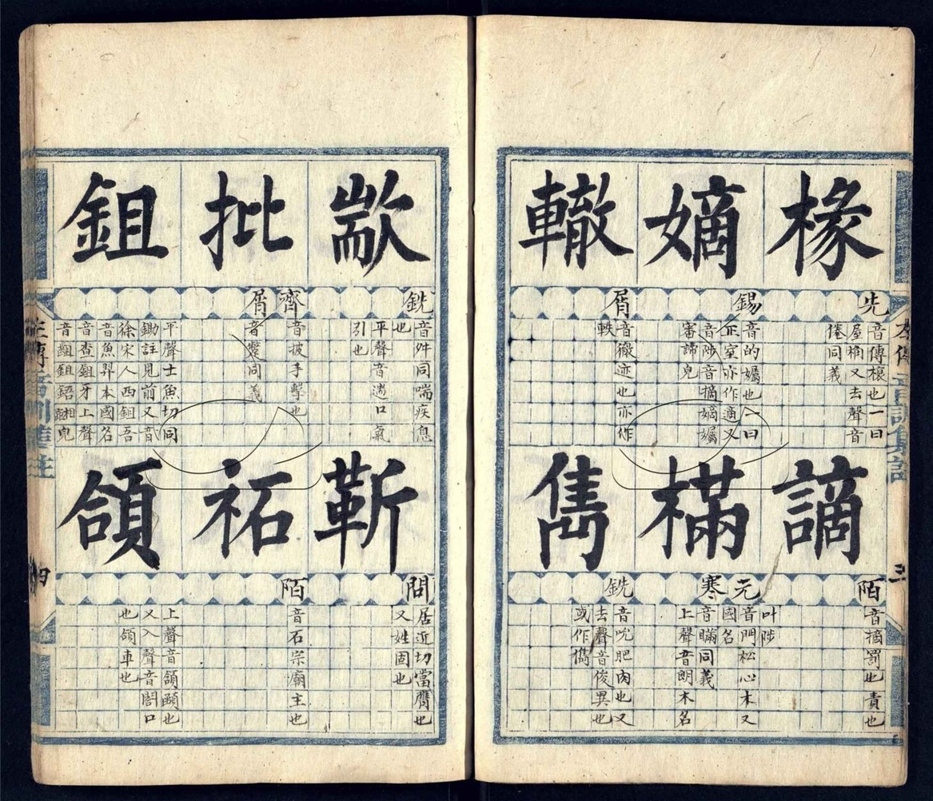 椽
嫡
轍
先
音傳榱也一曰
屋桷又去聲音
倦同義
錫
音的孎也一曰
正室亦作適又
音陟音摘嫡孎
審諦皃
屑
音徹迹也亦作
軼
謫
樠
雋
陌
音摘罰也責也
叶陟
元
音門松心木又
國名
寒
音瞞同義
上聲音朗木名
銑
音吮肥肉也又
去聲音俊異也
或作儁
歂
批
鉏
銑
音舛同喘疾息
也
平聲音遄口氣
引也
齊
音披手擊也
屑
音蹩同義
平聲士魚切同
鋤註見前又音
徐宋人西鉏吾
音魚羿本國名
音查鉏牙上聲
音齟鉏鋙相皃
靳
祏
頜
問
居近切當膺也
又姓固也
陌
音石宗廟主也
上聲音頷顄也
又入聲音閤口
也頜車也
四